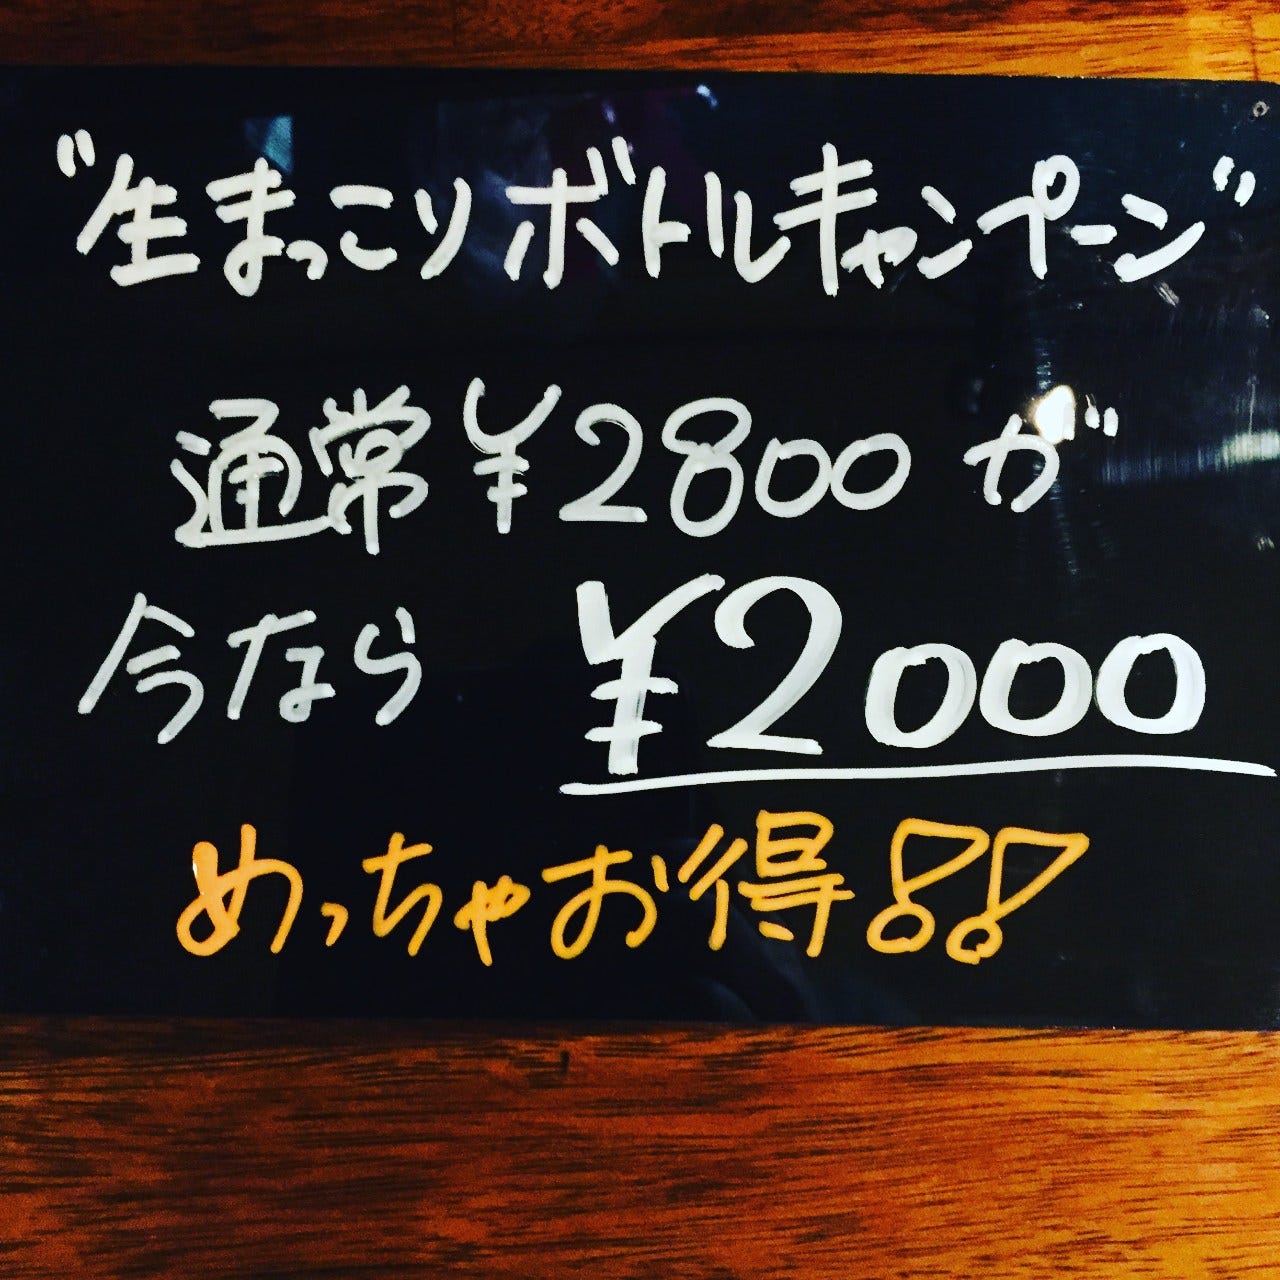 "生まっこりボトルキャンペーン"
通常¥2800が
今なら ¥2000
めっちゃお得!!